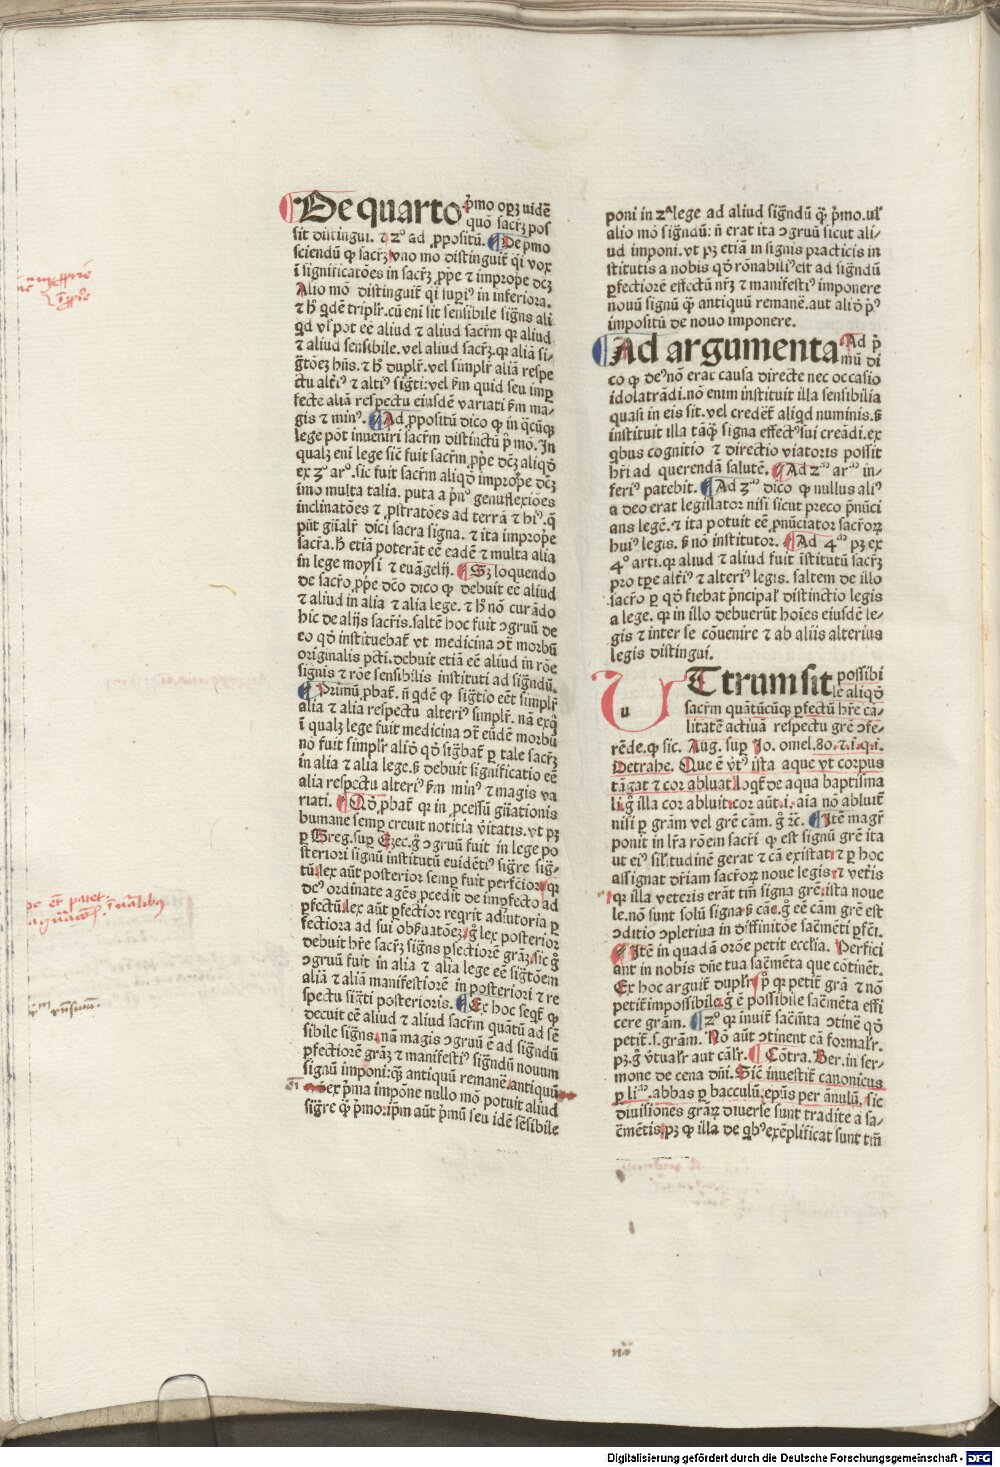 De quarto p̄mo oꝑꝫ uidē
quō sacrꝫ pos
sit distingui. ⁊ 2º ad ꝓpositū. De pmo
sciendū ꝙ sacrꝫ vno mo distinguit̄ qi vox
ī significatōes in sacrꝫ ꝓpe ⁊ imprope dcꝫ
Alio mō distinguit̄ qi supiꝰ in inferiora.
⁊ h̄ qdē triplr. cū eni sit sensibile signs ali
qd vl pot eē aliud ⁊ aliud sacrm qr aliud
⁊ aliud sensibile. vel aliud sacrꝫ. qr aliā si-
gtōeꝫ hn̄s. ⁊ h̄ duplr. vel simplr aliā respe
ctu altiꝰ ⁊ altiꝰ sigti: vel ẜm quid seu imp
fecte aliā respectu eiusdē variati ẜm ma-
gis ⁊ minꝰ. Ad ꝓpositū dico ꝙ in qcūqꝫ
lege pōt inveniri sacrm distinctū p̄ mō. In
qualꝫ eni lege sic fuit sacrm ꝓpe dcꝫ aliqd
ex 3º arº. sic fuit sacrm aliqd improꝑe dcꝫ
imo multa talia. puta a pnꝰ genuflexiões
inclinatões ⁊ ꝓstratões ad terrā ⁊ hiꝰ. q̄
pn̄t gn̄alr dici sacra signa. ⁊ ita imprope
sacra. h̄ etiā poterāt eē eadē ⁊ multa alia
in lege moysi ⁊ euāgelij. Sꝫ loquendo
de sacro, ꝓpe dco dico ꝙ debuit eē aliud
⁊ aliud in alia ⁊ alia lege. ⁊ h̄ nō curādo
hic de alijs sacris. saltē hoc fuit ɔgruū de
eo qd instituebat̄ vt medicina ɔt morbū
originalis pcti. debuit etiā eē aliud in rōe
signis ⁊ rōe sensibilis instituti ad signdū.
Primū ꝓbat̄. n̄ qdē ꝙ sigtio eēt simplr
alia ⁊ alia respectu alteriꝰ simplr. nā exq̄
ī qualꝫ lege fuit medicina ɔt eūdē morbū
nō fuit simplr aliō qd sigbat̄ p tale sacrꝫ
in alia ⁊ alia lege. ẞ debuit significatio eē
alia respectu alteriꝰ ẜm minꝰ ⁊ magis va
riati. Qd ꝓbat̄ qr in ꝓcessū gn̄ationis
humane semp creuit notitia v̄itatis. vt pꝫ
p Greg. sup Ezec. g̊ ɔgruū fuit in lege po
steriori signū institutū euidētiꝰ sigre sig-
tū. lex aūt posterior semp fuit perfcior. qr
deꝰ ordinate agēs ꝓcedit de impfecto ad
pfectū. lex aūt pfectior reqrit adiutoria p
fectiora ad sui obẜuatōeꝫ. g̊ lex posterior
debuit hr̄e sacrꝫ signs ꝑfectiorē grāꝫ. sic g̊
ɔgruū fuit in alia ⁊ alia lege eē sigtōem
aliā ⁊ aliā manifestiorē in posteriori ⁊ re
spectu sigti posterioris. Ex hoc seqt̄ ꝙ
decuit eē aliud ⁊ aliud sacrm quātū ad sē
sibile signs. nā magis ɔgruū ē ad signdū
pfectiorē grāꝫ ⁊ manifestiꝰ signdū nouum
signū imponi: qꝫ antiquū remanē. antiquū
ex p̄ma impōne nullo mō potuit aliud
sigre qꝫ p̄mo: ipm aūt p̄mū seu idē sēsibile
poni in 2ª lege ad aliud signdū qꝫ p̄mo. ul
alio mō signdū: n̄ erat ita ɔgruū sicut ali-
ud imponi. vt pꝫ etiā in signis practicis in
stitutis a nobis qd rōnabiliꝰ eit ad signdū
perfectiorē effectū nrꝫ ⁊ manifestiꝰ imponere
nouū signū qꝫ antiquū remanē. aut aliō pꝰ
impositū de nouo imponere.
Ad argumenta Ad p̄
mū di
co ꝙ deꝰ nō erat causa directe nec occasio
idolatrādi. nō enim instituit illa sensibilia
quasi in eis sit. vel credēt aliqd numinis. ẞ
instituit illa tāqꝫ signa effectꝰ sui creādi. ex
qbus cognitio ⁊ directio viatoris possit
hri ad querendā salutē. Ad 2ᵐ arᵐ in-
feriꝰ patebit. Ad 3ᵐ dico ꝙ nullus aliꝰ
a deo erat legislator nisi sicut preco pnūci
ans legē. ⁊ ita potuit eē ꝓnūciator sacroꝝ
huiꝰ legis. ẞ nō institutor. Ad 4ᵐ pꝫ ex
4º arti. qr aliud ⁊ aliud fuit īstitutū sacrꝫ
pro tpe altiꝰ ⁊ alteriꝰ legis. saltem de illo
sacro p qd fiebat p̄ncipal distinctio legis
a lege. qr in illo debuerūt hoīes eiusdē le-
gis ⁊ inter se cōuenire ⁊ ab aliis alterius
legis distingui.
UTtrum sit possibi
lē aliqd
sacrm quātūcūqꝫ pfectū hr̄e ca-
litatē actiuā respectu grē ɔfe-
rēde. ꝙ sic. Aug. sup Jo. omel. 80. ⁊.i. q.i.
Detrahe. Que ē vtꝰ ista aque vt corpus
tāgat ⁊ cor abluat. loqt̄ de aqua baptisma
li. g̊ illa cor abluit. cor aūt .i. aīa nō abluit̄
nisi p grām vel grē cām. g̊ ⁊c. Itē magr
ponit in lra rōem sacri ꝙ est signū grē ita
ut eiꝰ silitudinē gerat ⁊ cā existat. ⁊ p hoc
assignat driam sacroꝝ noue legis. ⁊ vetis
qr illa veteris erāt tm̄ signa grē. ista noue
le. nō sunt solū signa ẞ cāe. g̊ eē cām grē est
ɔditio ɔpletiua in diffinitōe sacēmēti pfci.
Itē in quadā orōe petit ecclia. Perfici
ant in nobis dn̄e tua sacēmēta que cōtinēt.
Ex hoc arguit̄ duplr. pº qr petit grā ⁊ nō
petit̄ impossibile. g̊ ē possibile sacēmēta effi
cere grām. 2º qr inuit̄ sacēmta ɔtinē qd
petit̄. s. grām. Nō aūt ɔtinent eā formalr.
pꝫ. g̊ v̄tualr aut cālr. Cōtra. Ber. in ser-
mone de cena dn̄i. Sic inuestit̄ canonicus
p liᵐ. abbas p bacculū: epūs per ānulū. sic
diuisiones grāꝝ diuerse sunt tradite a sa-
cēmētis. pꝫ ꝙ illa de qbꝰ exēplificat sunt tm̄
Digitalisierung gefördert durch die Deutsche Forschungsgemeinschaft - DFG